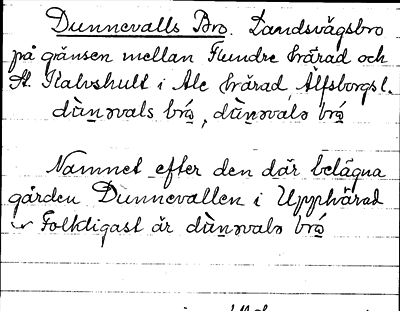 Dunnevalls Bro. Landsvägsbro
på gränsen mellan Flundre härad och
St. Kalvshult i Ale härad, Älfsborgs l.
dùn̲əvals brό̲, dùn̲əvalə brό̲
Namnet efter den där belägna
gården Dunnevallen i Upphärad
Folkligast är dùn̲əvalə brό̲